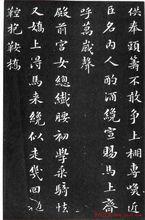 供奉頭籌不敢爭上棚專喚近
臣名內人酌酒纔宣賜馬上齊
呼萬歲聲
殿前宮女總纖腰初學乘騎怯
又嬌上得馬来纔似走幾回拋
鞚抱鞍橋